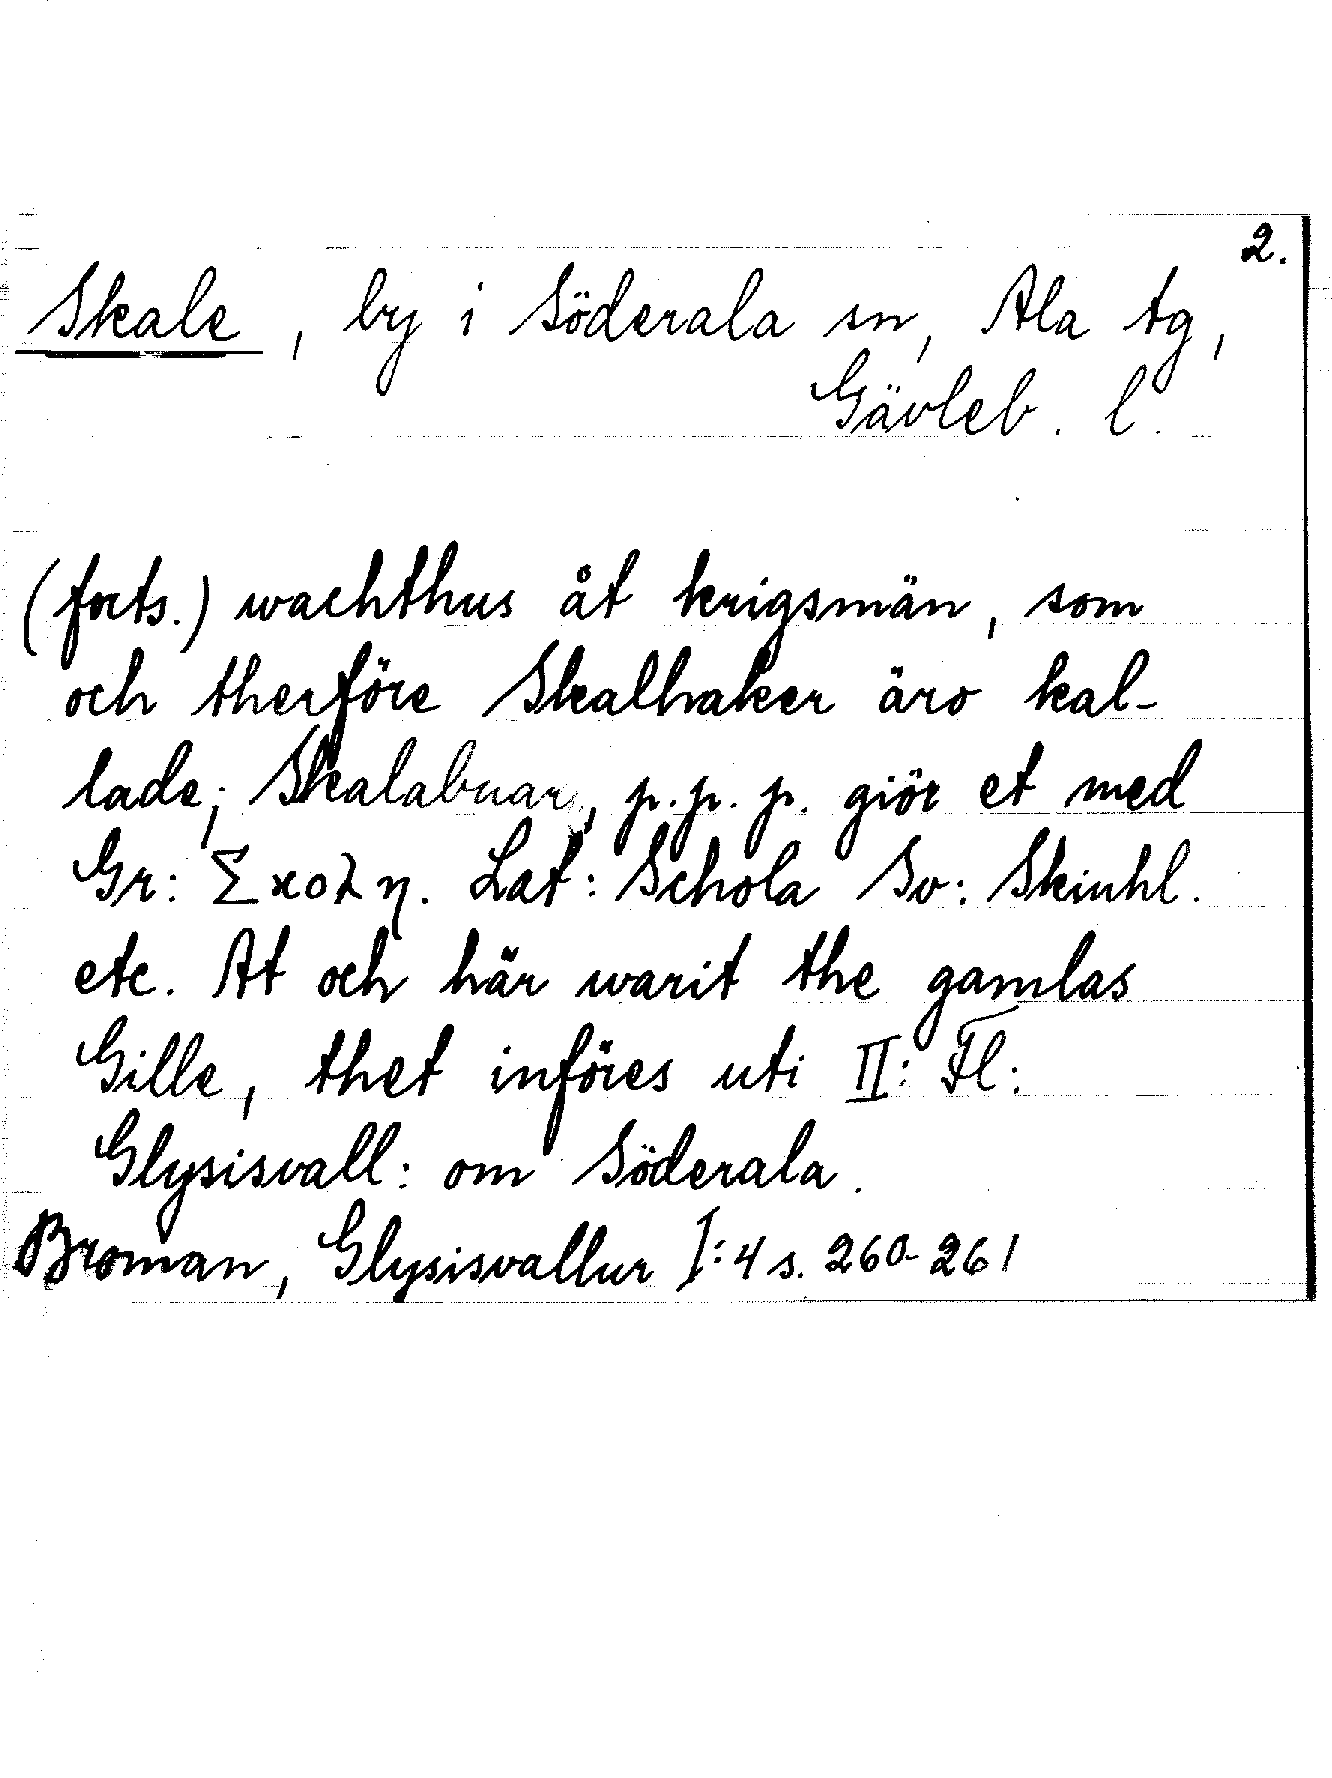 2.
Skale, by i Söderala sn, Ala tg,
Gävleb. l.
(forts.) wachthus åt krigsmän, som
och therföre Skalhaker äro kal-
lade; Skalabuar, p.p.p. giör et med
Gr: Σχολη. Lat: Schola Sv: Skiuhl.
etc. At och här warit the gamlas
Gille, thet införes uti II: Fl:
Glysisvall: om Söderala.
Broman, Glysisvallur I:4 s. 260-261